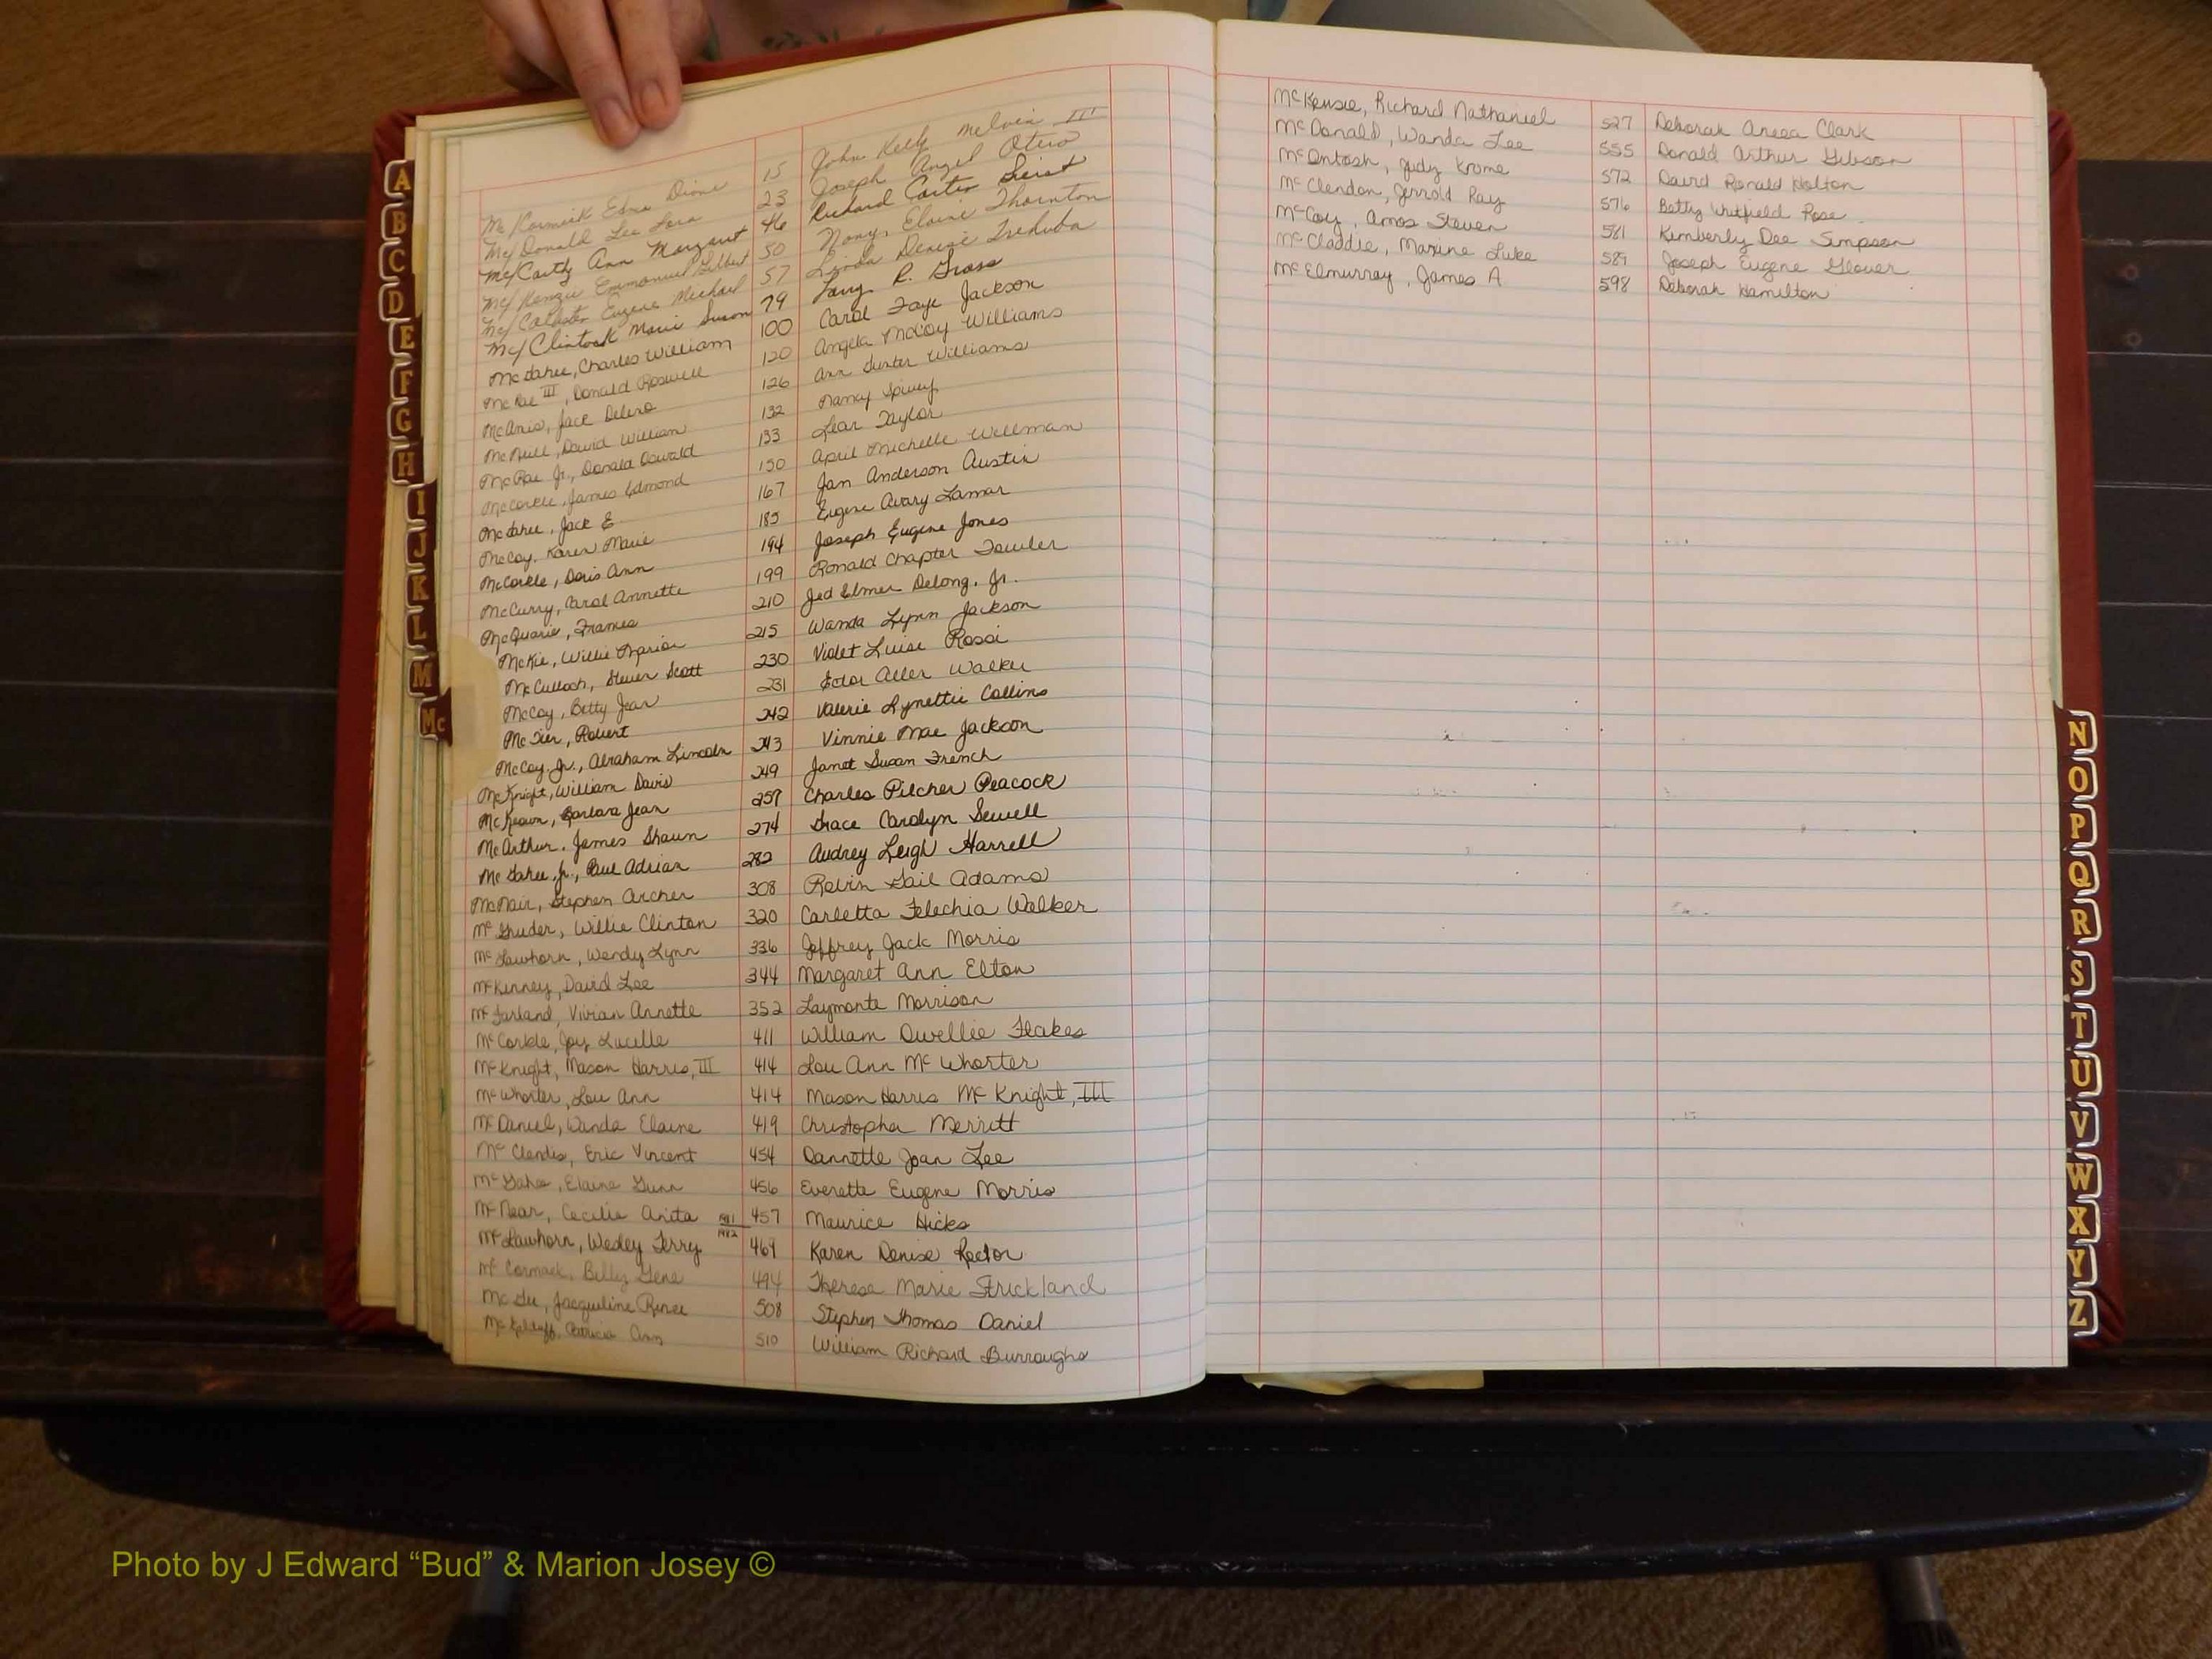 A
B
C
D
E
F
G
H
I
J
K
L
M
Mc
McCormick Edna Diane 15 John Kelly Melvin III
McDonald Lee Lora 23 Joseph Angel Otero
McCarty Ann Margaret 46 Richard Carter
McKenzie Emmanuel Gilbert 50 Nonys Elaine Thornton
Eugene Michael 57 Linda Denise
McClintock Marie Susan 79 Larry R. Gross
McGahee, Charles William 100 Carol Faye Jackson
McRae III, Donald Roswell 120 Angela McCoy Williams
McAnis, Jack Delano 126 Ann Williams
McNeill, David William 132 Nancy Spivey
McRae Jr., Donald Oswald 133 Lear Taylor
McCorkle, James Edmond 150 April Michelle Wellman
McGahee, Jack E 167 Jan Anderson Austin
McCoy, Karen Marie 185 Eugene Avary Lamar
McCorkle, Doris Ann 194 Joseph Eugene Jones
McCurry, Carol Annette 199 Ronald Chapter Fowler
McQuarie, Frances 210 Jed Elmer Delong, Jr.
McKie, Willie Marion 215 Wanda Lynn Jackson
McCulloch, Steven Scott 230 Violet Luise Rossi
McCoy, Betty Jean 231 Ector Allen Walker
McTier, Robert 242 Valerie Lynettie Collins
McCoy, Jr., Abraham Lincoln 243 Vinnie Mae Jackson
McKnight, William Davis 249 Janet Susan French
McKeown, Barbara Jean 257 Charles Pilcher Peacock
McArthur, James Shaun 274 Grace Carolyn Sewell
McGahee, Jr., Paul Adrian 282 Audrey Leigh Harrell
McNair, Stephen Archer 308 Robin Gail Adams
McGruder, Willie Clinton 320 Carletta Felechia Walker
McLawhorn, Wendy Lynn 336 Jeffrey Jack Morris
McKinney, David Lee 344 Margaret Ann Elton
McFarland, Vivian Annette 352 Laymonte Morrison
McCorkle, Joy Lucille 411 William Dwellie Flakes
McKnight, Mason Harris, III 414 Lou Ann McWhorter
McWhorter, Lou Ann 414 Mason Harris McKnight, III
McDaniel, Wanda Elaine 419 Christopher Merritt
McClendis, Eric Vincent 454 Dannette Joan Lee
McGahee, Elaine Gunn 456 Everette Eugene Morris
McNear, Cecilia Anita 1981 457 Maurice Hicks
McLawhorn, Wesley Terry 1982 469 Karen Denise Rector
McCormack, Billy Gene 494 Theresa Marie Strickland
McGee, Jacqueline Renee 508 Stephen Thomas Daniel
Patricia Ann 510 William Richard Burroughs
McKensie, Richard Nathaniel 527 Deborah Clark
McDonald, Wanda Lee 555 Donald Arthur Gibson
McIntosh, Judy Krome 572 David Ronald Holton
McClendon, Jerrold Ray 576 Betty Whitfield Rose
McCoy, Amos Steven 581 Kimberly Dee Simpson
McCladdie, Maxine Luke 589 Joseph Eugene Glover
McElmurray, James A 598 Deborah Hamilton
N
O
P
Q
R
S
T
U
V
W
X
Y
Z
Photo by J Edward “Bud” & Marion Josey ©